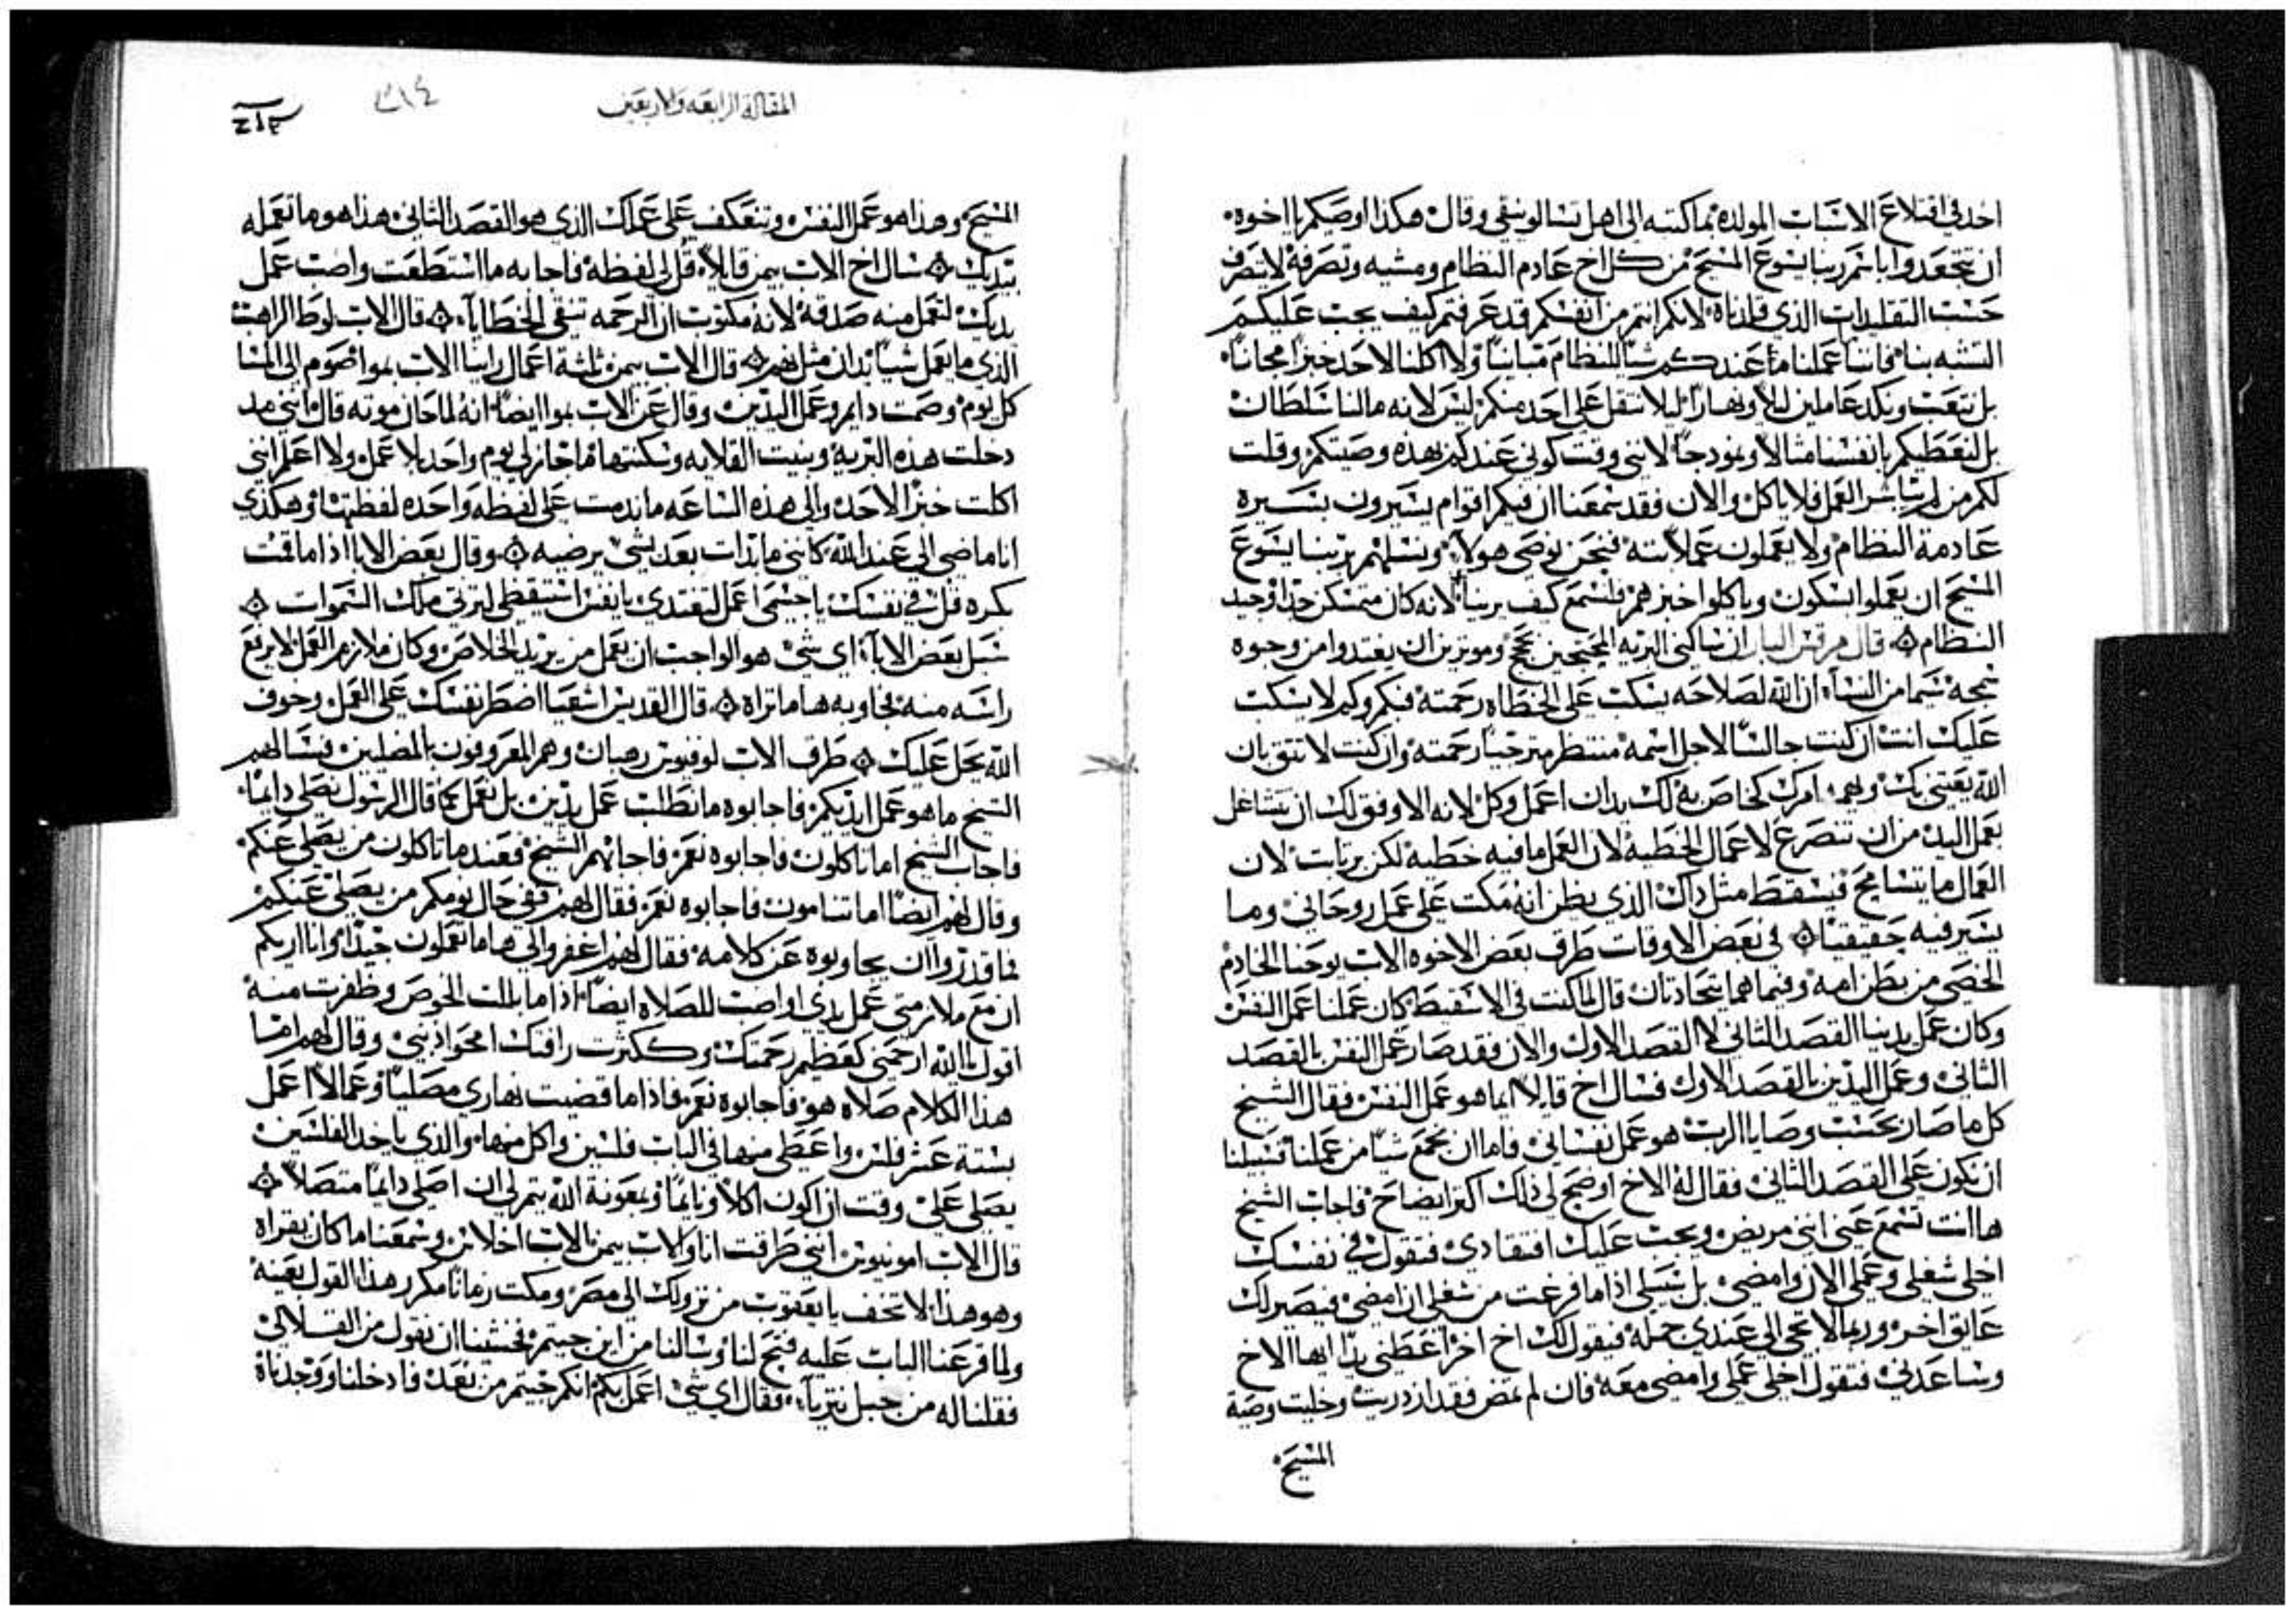 اخد في اقتلاع الاسباب المولده بما كتبه الى اهل تسالونيقي وقال هكذا اوصيكم يا اخوه
ان تتجعدوا باسم ربنا يسوع المسيح من كل اخ عادم النظام ومشيه وتصرفه لا يتصرف
حسب التقليدات الذي قلدناه لانكم انتم من انفسكم قد عرفتم كيف يجب عليكم
التشبه بنا فاننا عملنا ما عندكم شيا للنظام مباينا ولا اكلنا لاحد خبزا مجانا
بل نتعب ونكد عاملين ليلا ونهارا ليلا نتقل على احد منكم ليس لانه مالنا سلطان
بل لنعطيكم بانفسنا مثالا ونمودجا لانني وقت كوني عندكم بهده وصيتكم وقلت
لكم من لم يباشر العمل فلا ياكل والان فقد سمعنا ان فيكم اقوام يسيرون بسيره
عادمة النظام ولا يعملون عملا بته فنحن نوصي هولاء ونسلهم بربنا يسوع
المسيح ان يعملوا بسكون وياكلوا خبزهم فلنسمع كيف يربنا لانه كان متمسكن جدا وحيد
النظام قال مرقس البار ان ساكني البريه المحبحين بحج وموترين ان يغتدوا من وجوه
سمجه شما من النساء ان الله لصلاحه يسكب على الخطاه رحمته فكم وكم لا يسكب
عليك انت ان كنت جالسا لاجل اسمه منتظر مترجيا رحمته وان كنت لا تتق بان
الله يعتني بك ويهم امرك كخاص به لك بدان اعمل وكل لانه الاوفق لك ان تشاغل
بعمل اليد من ان تتضرع لاعمال الخطيه لان العمل ما فيه خطيه لكن برتاب لان
العمال ما يتسامح فيسقط مثل داك الذي يظن انه مكب على عمل روحاني وما
يسير فيه حقيقيا في بعض الاوقات طرق بعض الاخوه الاب يوحنا الخادم
الخصي من بطن امه وفيما هما يتحادتان قال لما كنت في الاسقيط كان عملنا عمل النفس
وكان عمل يدينا القصد الثاني لا القصد الاول والان فقد صار عمل النفس بالقصد
الثاني وعمل اليدين بالقصد الاول فسال اخ قايلا ايما هو عمل النفس فقال الشيخ
كل ما صار بحسب وصايا الرب هو عمل نفساني فاما ان نجمع شيا من عملنا فسبيلنا
ان نكون على القصد الثاني فقال له الاخ اوضح لي ذلك اكثر ايضاح فاجاب الشيخ
ها انت تسمع عني انني مريض ويجب عليك افتقادي فتقول في نفسك
اخلي شغلي وعملي الان وامضي بل سبيلي اذا ما فرغت من شغلي ان امضي فيصير لك
عايق اخر وربما لا تجي الي عندي جمله فيقول لك اخ اخر اعطني يدا ايها الاخ
وساعدني فتقول اخلي عملي وامضي معه فان لم تمض فقد ازدريت وخليت وصية
المسيح
المقالة الرابعه والاربعين
٢١٤
المسيح وهذا هو عمل النفس وتنعكف على عملك الذي هو القصد الثاني هذا هو ما تعمله
بيديك سال اخ الاب بيمن قايلا قل لي لفظة فاجابه ما استطعت واصب عمل
يديك لتعمل منه صدقة لانه مكتوب ان الرحمه تنقي الخطايا قال الاب لوط الراهب
الذي ما يعمل شيا يدان مثل نهم قال الاب بيمن ثلثة اعمال راينا الاب بموا صوم الى المسا
كل يوم وصمت دايم وعمل اليدين وقال عن الاب بموا ايضا انه لما حان موته قال انني مد
دخلت هذه البريه وبنيت القلايه وسكنتها ما جاز لي يوم واحد بلا عمل ولا اعلم انني
اكلت خبز لاحد والى هذه الساعه ما ندمت على لفظه واحده لفظتها وهكذي
انا ماضي الى عند الله كانني ما بدات بعد بشي يرضيه وقال بعض الابا اذا ما قمت
بكره قل في نفسك يا جسمي اعمل لتغتدي يا نفس استيقظي لترتي ملك السموات
سيل بعض الابا اي شي هو الواجب ان يعمل من يريد الخلاص وكان ملازم العمل لا يرفع
راسه منه فجاوبه ها ما تراه قال القديس اشعيا اضطر نفسك على العمل وخوف
الله يحل عليك طرق الاب لوقيوس رهبان وهم المعروفون بالمصلين فسالهم
الشيخ ما هو عمل ايديكم فاجابوه ما نطلب عمل يدين بل نعمل كما قال الرسول نصلي دايما
فاجاب الشيخ اما تاكلون فاجابوه نعم فاجابهم الشيخ فعند ما تاكلون من يصلي عنكم
وقال لهم ايضا اما تنامون فاجابوه نعم فقال لهم ففي حال نومكم من يصلي عنكم
فما قدروا ان يجاوبوه عن كلامه فقال لهم اغفروا لي ها ما تعملون جيدا وانا اريكم
ان مع ملازمتي عمل يدي اواصب للصلاه ايضا اذا ما بللت الخوص وظفرت منه
اقول يا الله ارحمني كعظيم رحمتك وكثرت رافتك امحوا ذنبي وقال لهم اهسا
هذا الكلام صلاه هو فاجابوه نعم فاذا ما قضيت نهاري مصليا وعمالا اعمل
بستة عشر فلس واعطي منها في الباب فلسين واكل منها والذي ياخد الفلسين
يصلي علي وقت ان اكون اكلا ونايما وبمعونة الله يتم لي ان اصلي دايما متصلا
قال الاب امونيوس انني طرقت انا والاب بيمن الاب اخلاس وسمعنا ما كان يقراه
وهو هذا لا تخف يا يعقوب من نزولك الى مصر ومكت زمانا مكرر هذا القول بعينه
ولما قرعنا الباب عليه فتح لنا وسالنا من اين جيتم فخشينا ان نقول من القلالي
فقلنا له من جبل نتريا فقال اي شي اعمل بكم انكم جيتم من بعد فادخلنا ووجدناه